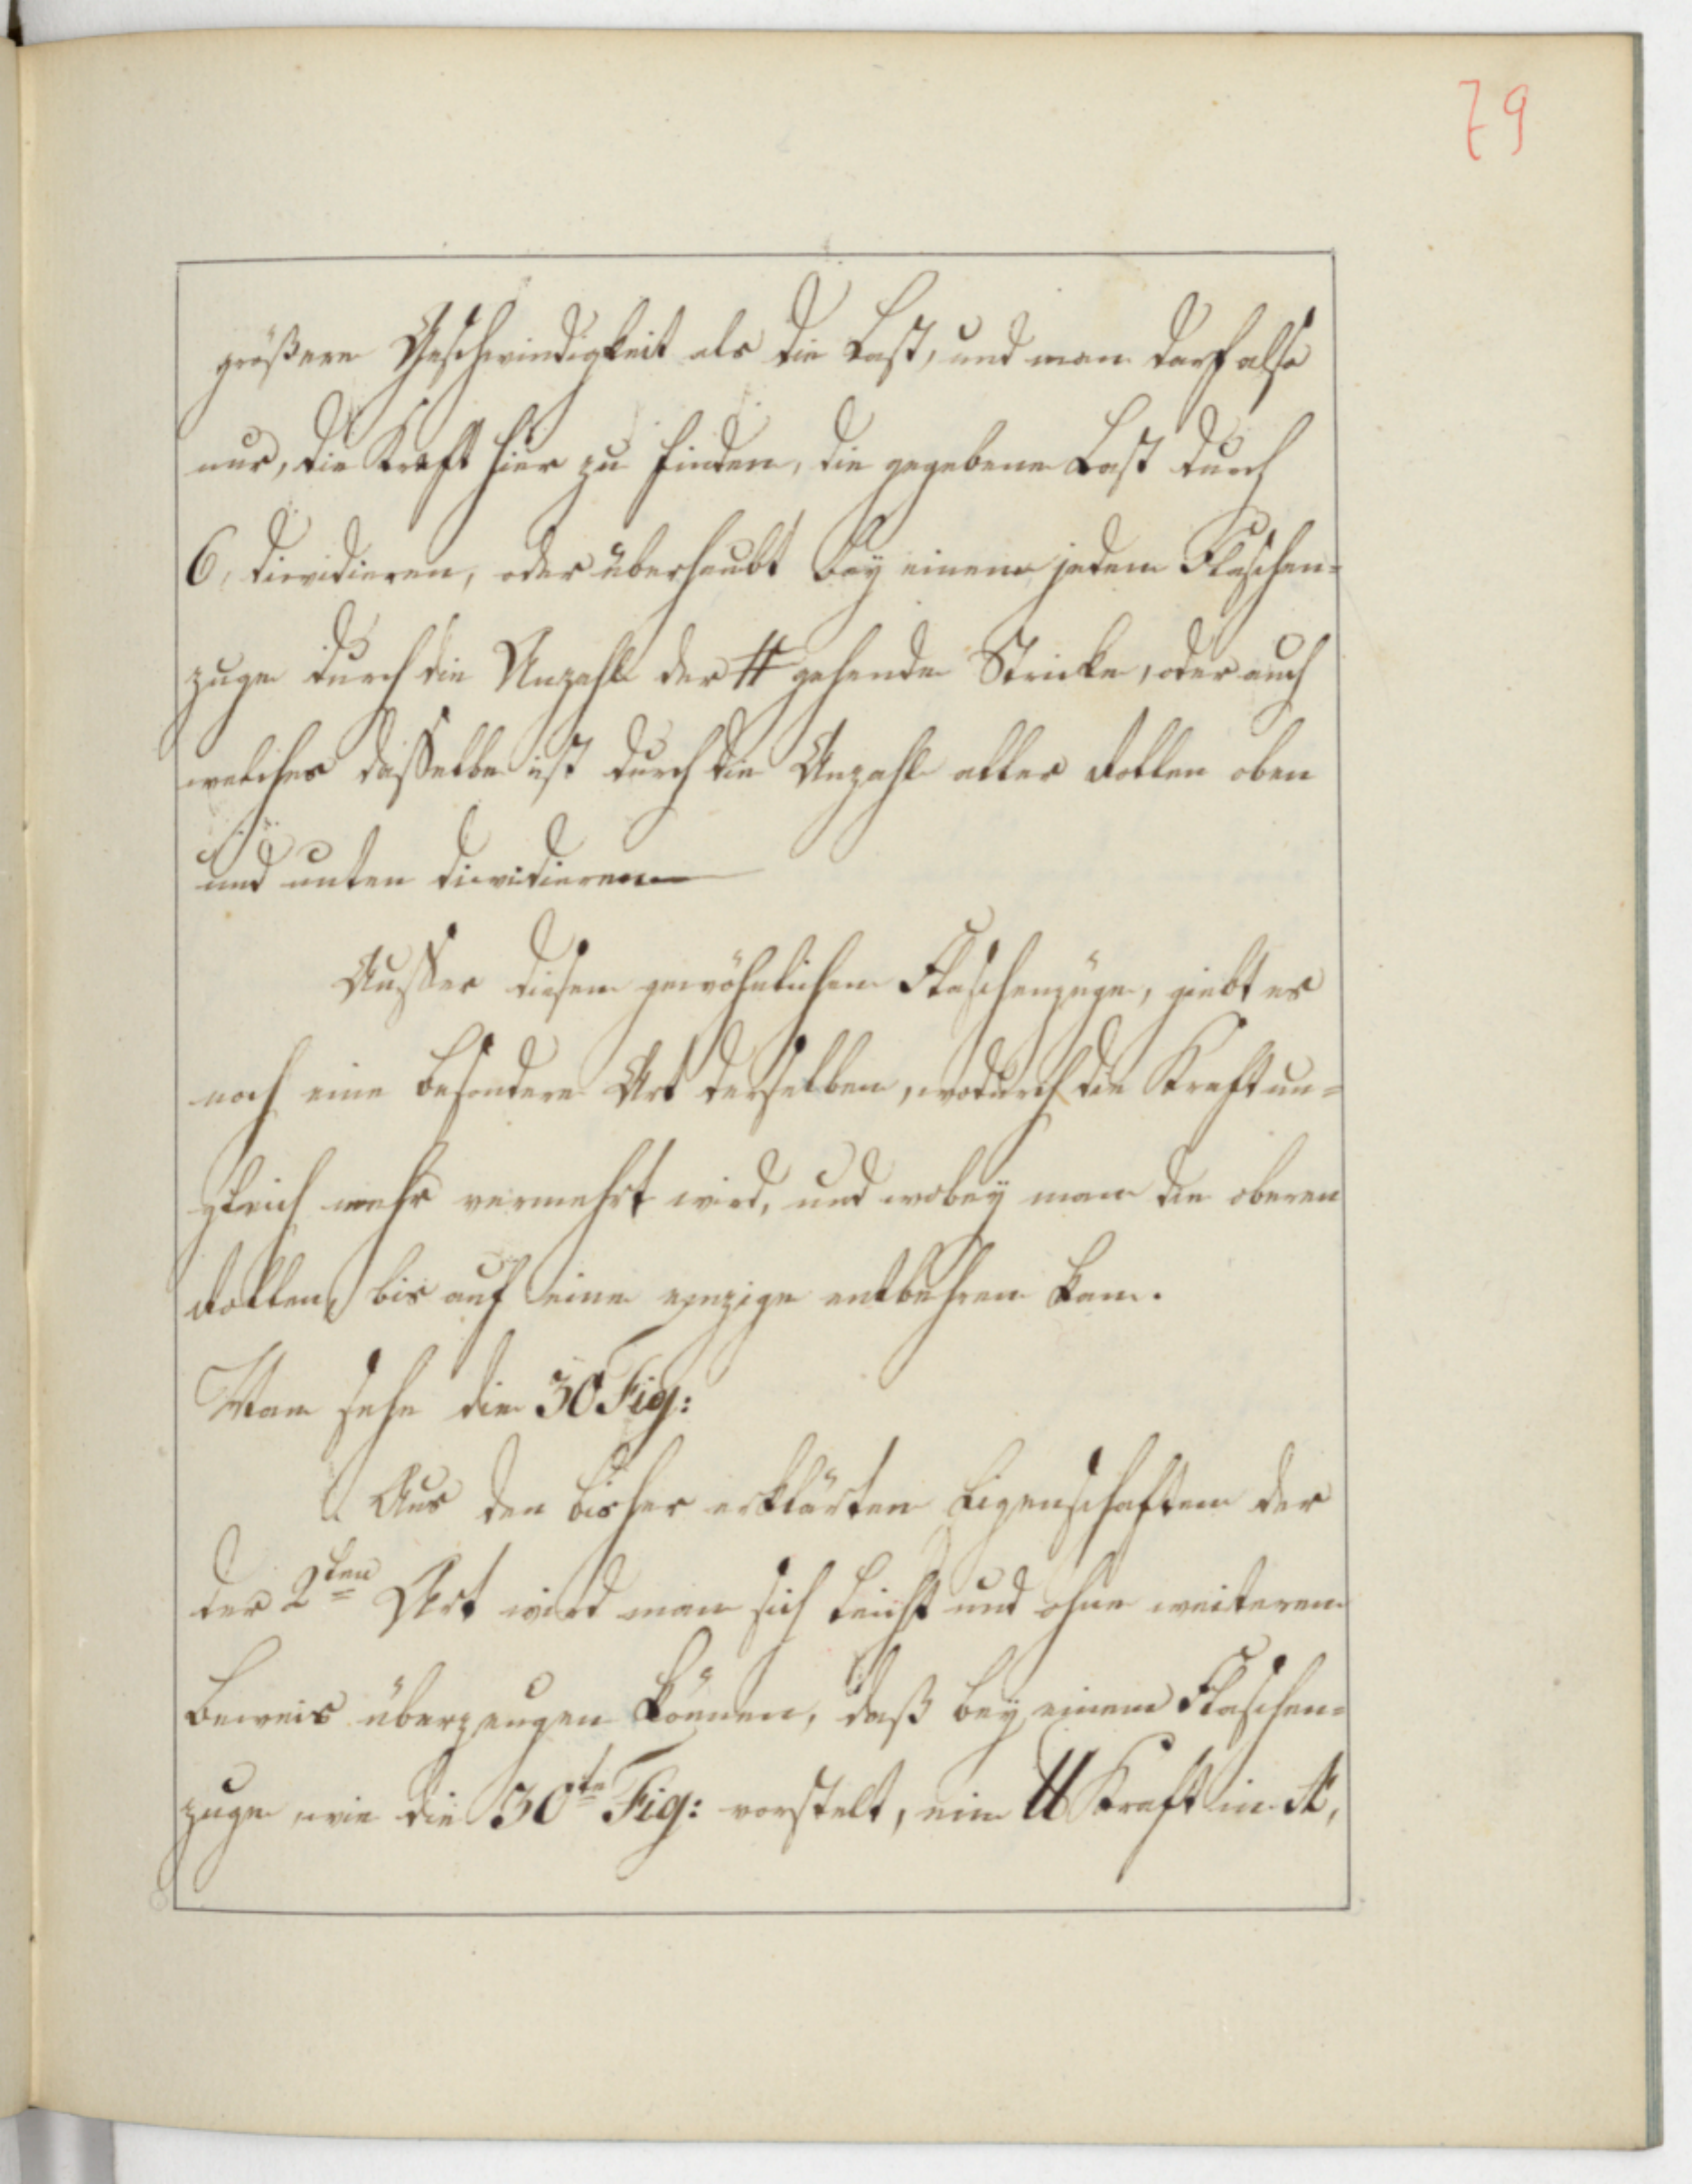 79
größere Geschwindigkeit als die Last, und man darf also
nur, die Kraft hier zu finden, die gegebene Last durch
6, dievidieren, oder überhaubt bey einem jedem Flaschen=
zuge durch die Anzahl der # gehende Stricke, oder auch
welches daßelbe ist durch die Anzahl aller Rollen oben
und unten dievidieren
Ausser diesem gewöhnlichen Flaschenzüge, giebt es
noch eine besondere Art derselben, wodurch die Kraft un=
gleich mehr vermehrt wird, und wobey man die oberen
Rollen, bis auf eine eynzige entbehren kan.
Man sehe die 30 Fig:
Aus den bisher erklärten Eigenschaften der
der 2ten Art wird man sich leicht und ohne weiteren
Beweis überzeugen können, daß bey einem Flaschen=
zuge, wie die 30te Fig: vorstelt, ein ℔ Kraft in K,